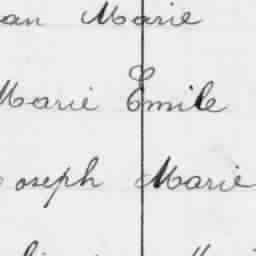 an Marie
Marie Emile
oseph Marie